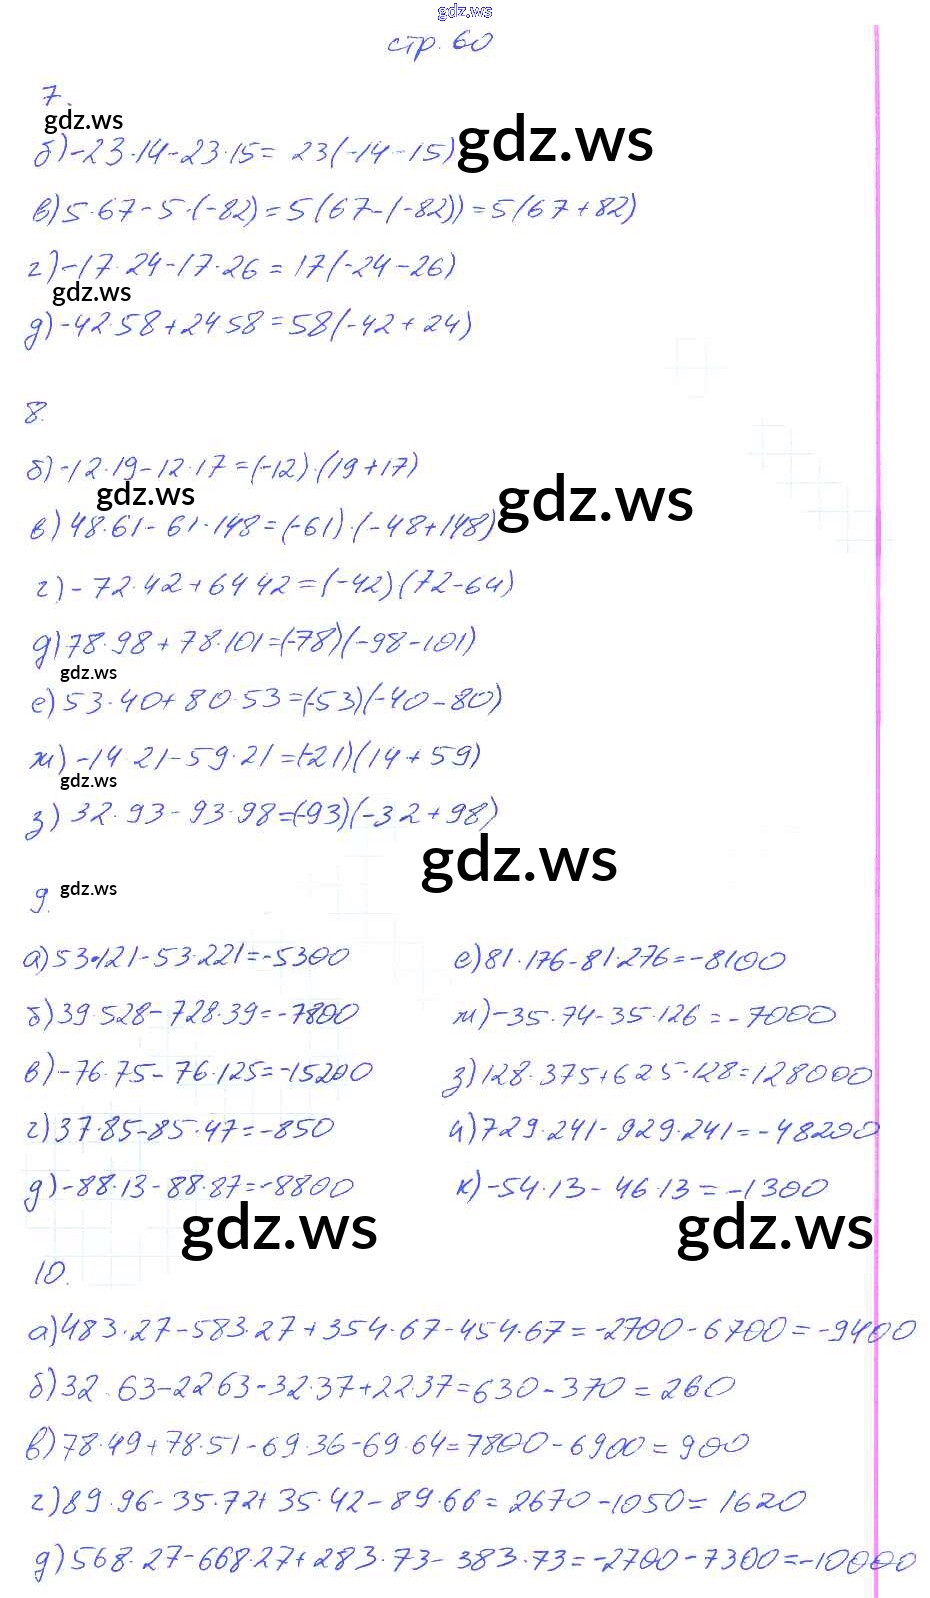 gdz.ws
стр. 60
7.
gdz.ws
б) -23·14-23·15= 23(-14-15)
gdz.ws
в) 5·67-5·(-82)=5(67-(-82))=5(67+82)
г) -17·24-17·26 = 17(-24-26)
gdz.ws
д) -42·58+24 58=58(-42+24)
8.
б) -12·19-12·17=(-12)·(19+17)
gdz.ws
gdz.ws
в) 48·61-61·148=(-61)·(-48+148)
г) -72·42+64 42=(-42)(72-64)
д) 78·98+78·101=(-78)(-98-101)
gdz.ws
е) 53·40+80·53=(-53)(-40-80)
ж) -14·21-59·21=(-21)(14+59)
gdz.ws
з) 32·93-93·98=(-93)(-32+98)
gdz.ws
9.
gdz.ws
а) 53·121-53·221=-5300
б) 39·528-728·39=-7800
в) -76·75-76·125=-15200
г) 37·85-85·47=-850
д) -88·13-88·87=-8800
е) 81·176-81·276=-8100
ж) -35·74-35·126=-7000
з) 128·375+625·128=128000
и) 729·241-929·241=-48200
к) -54·13-46·13=-1300
gdz.ws
gdz.ws
10.
а) 483·27-583·27+354·67-454·67=-2700-6700=-9400
б) 32·63-22 63-32·37+22·37=630-370=260
в) 78·49+78·51-69·36-69·64=7800-6900=900
г) 89·96-35·72+35·42-89·66=2670-1050=1620
д) 568·27-668·27+283·73-383·73=-2700-7300=-10000